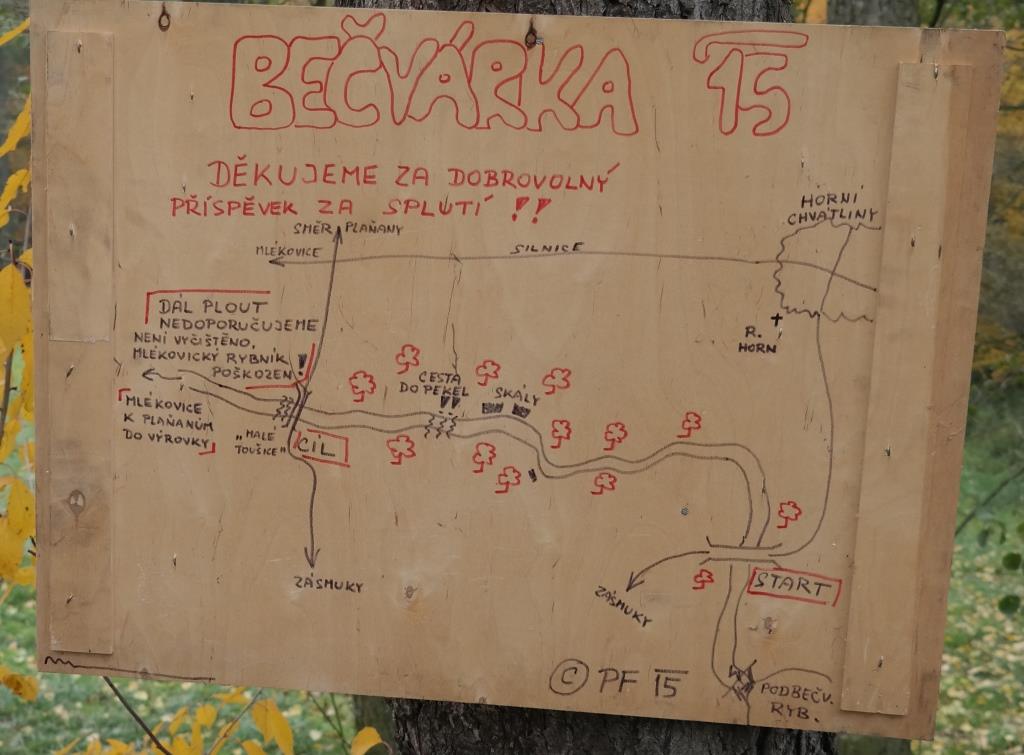 BEČVÁRKA 15
DĚKUJEME ZA DOBROVOLNÝ
PŘÍSPĚVEK ZA SPLUTÍ !!
SMĚR PLAŇANY
MLÉKOVICE
SILNICE
HORNÍ
CHVATLINY
R.
HORN
DÁL PLOUT
NEDOPORUČUJEME
NENÍ VYČIŠTĚNO,
MLÉKOVICKÝ RYBNÍK
POŠKOZEN !
CESTA
DO PEKEL
!!
SKÁLY
MLÉKOVICE
K PLAŇANŮM
DO VÝROVKY
„MALE
TOUŠICE"
CÍL
ZÁSMUKY
ZÁSMUKY
START
PODBEČV.
RYB.
© PF 15